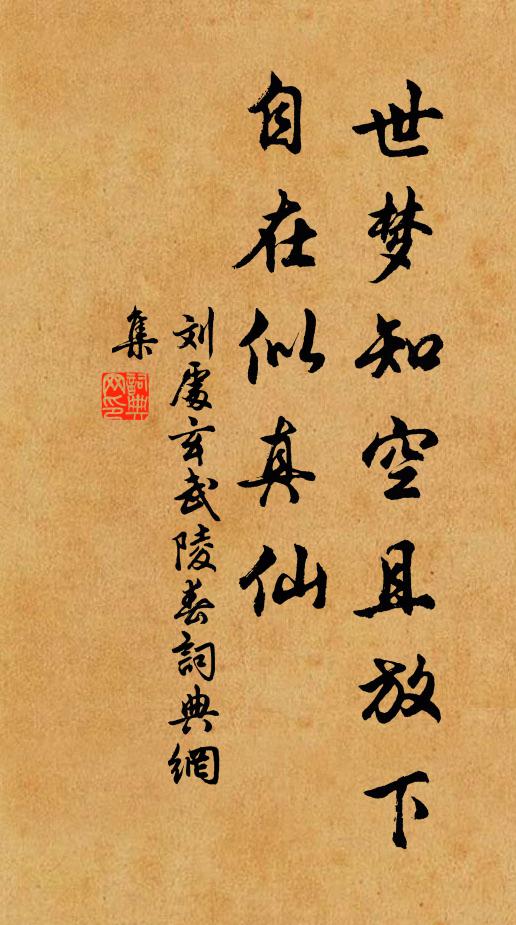 世梦知空且放下
自在似真仙
刘處玄武陵春詞典網
集
詞典网印